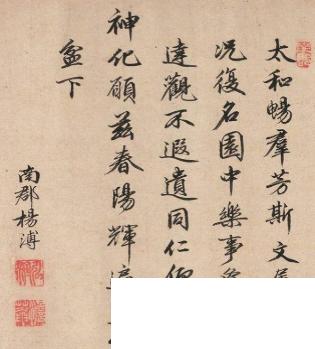 太和暢羣芳斯文
况復名園中樂事
達觀不遐遺同仁
神化願兹春陽輝
盆下
南郡楊溥